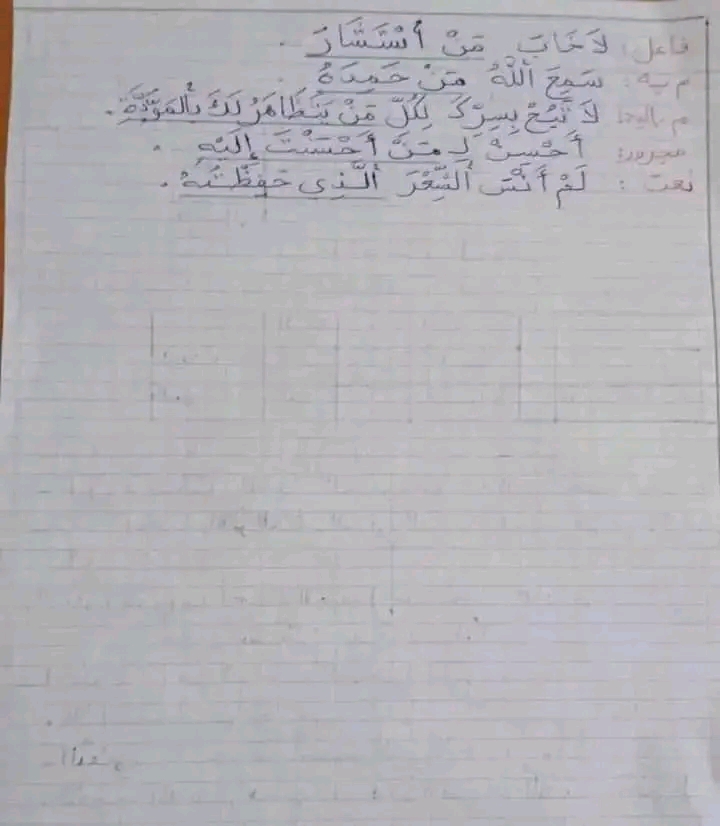 فاعل: لَا خَابَ مَنْ أسْتَشَارَ.
م به: سَمِعَ أللَّهُ مَنْ حَمِدَهُ.
م إليه: لَا تَبُحْ بِسِرِّكَ لِكُلِّ مَنْ يَتَظَاهَرُ لَكَ بِألمَوَدَّةِ.
مجرور: أَحْسِنْ لِـ مَنْ أَحْسَنْتَ إِلَيْهِ.
نعت: لَمْ أَنْسَ ألشِّعْرَ ألَّذِي حَفِظْتُهُ.